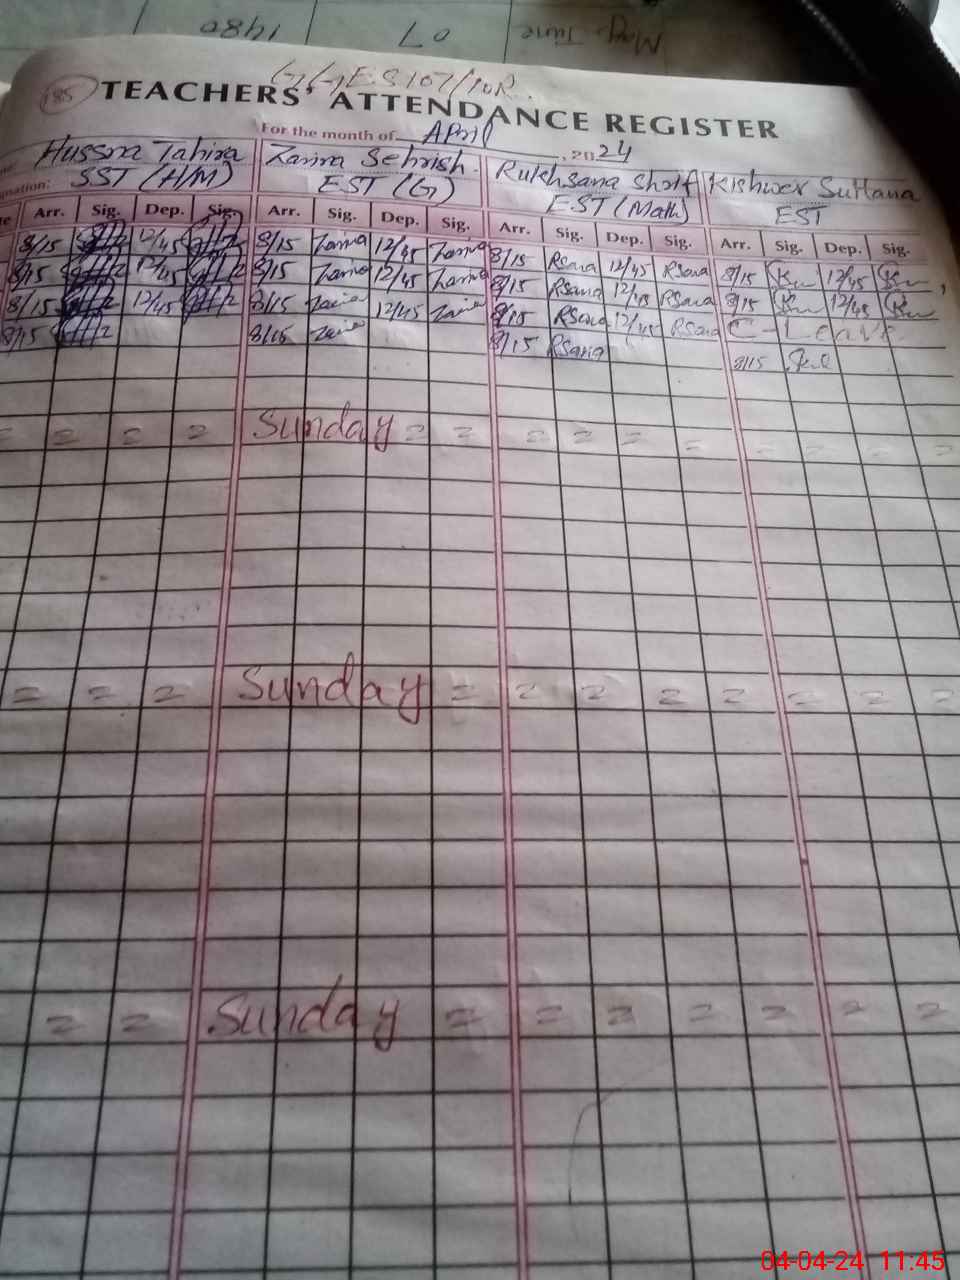 May June 07 1480
GGES 107/10R.
185 TEACHERS' ATTENDANCE REGISTER
For the month of April, 2024
Hussna Tahira Zarina Sehrish. Rukhsana Shrif Kishwer Sultana
nation: SST (H/M) EST (G) EST (Math) EST
Arr. Sig. Dep. Sig. Arr. Sig. Dep. Sig. Arr. Sig. Dep. Sig. Arr. Sig. Dep. Sig.
8/15 12/45 8/15 Zarina 12/45 Zarina 8/15 RSana 12/45 RSana 8/15 12/45
8/15 12/45 8/15 Zarina 12/45 Zarina 8/15 RSana 12/45 RSana 8/15 12/45
8/15 12/45 8/15 Zarina 12/45 Zarina 8/15 RSana 12/45 RSana C-Leave
8/15 8/15 Zarina 8/15 RSana 8/15
= = = = Sunday = = = = = = = = =
= = = Sunday = = = = = = = =
= = Sunday = = = = = = =
04-04-24 11:45